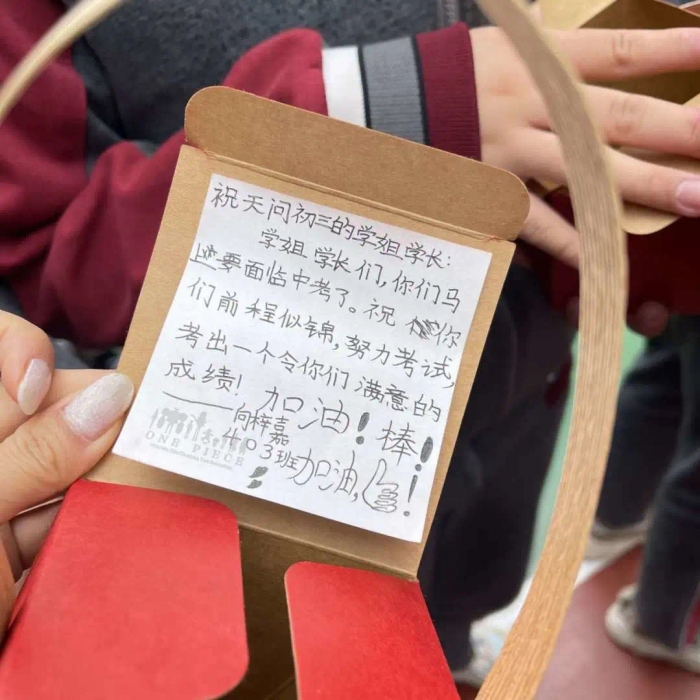 祝天问初三的学姐学长:
学姐学长们,你们马
上要面临中考了。祝你
们前程似锦,努力考试,
考出一个令你们满意的
成绩!加油!棒!
——向梓嘉
403班加油,!
ONE PIECE